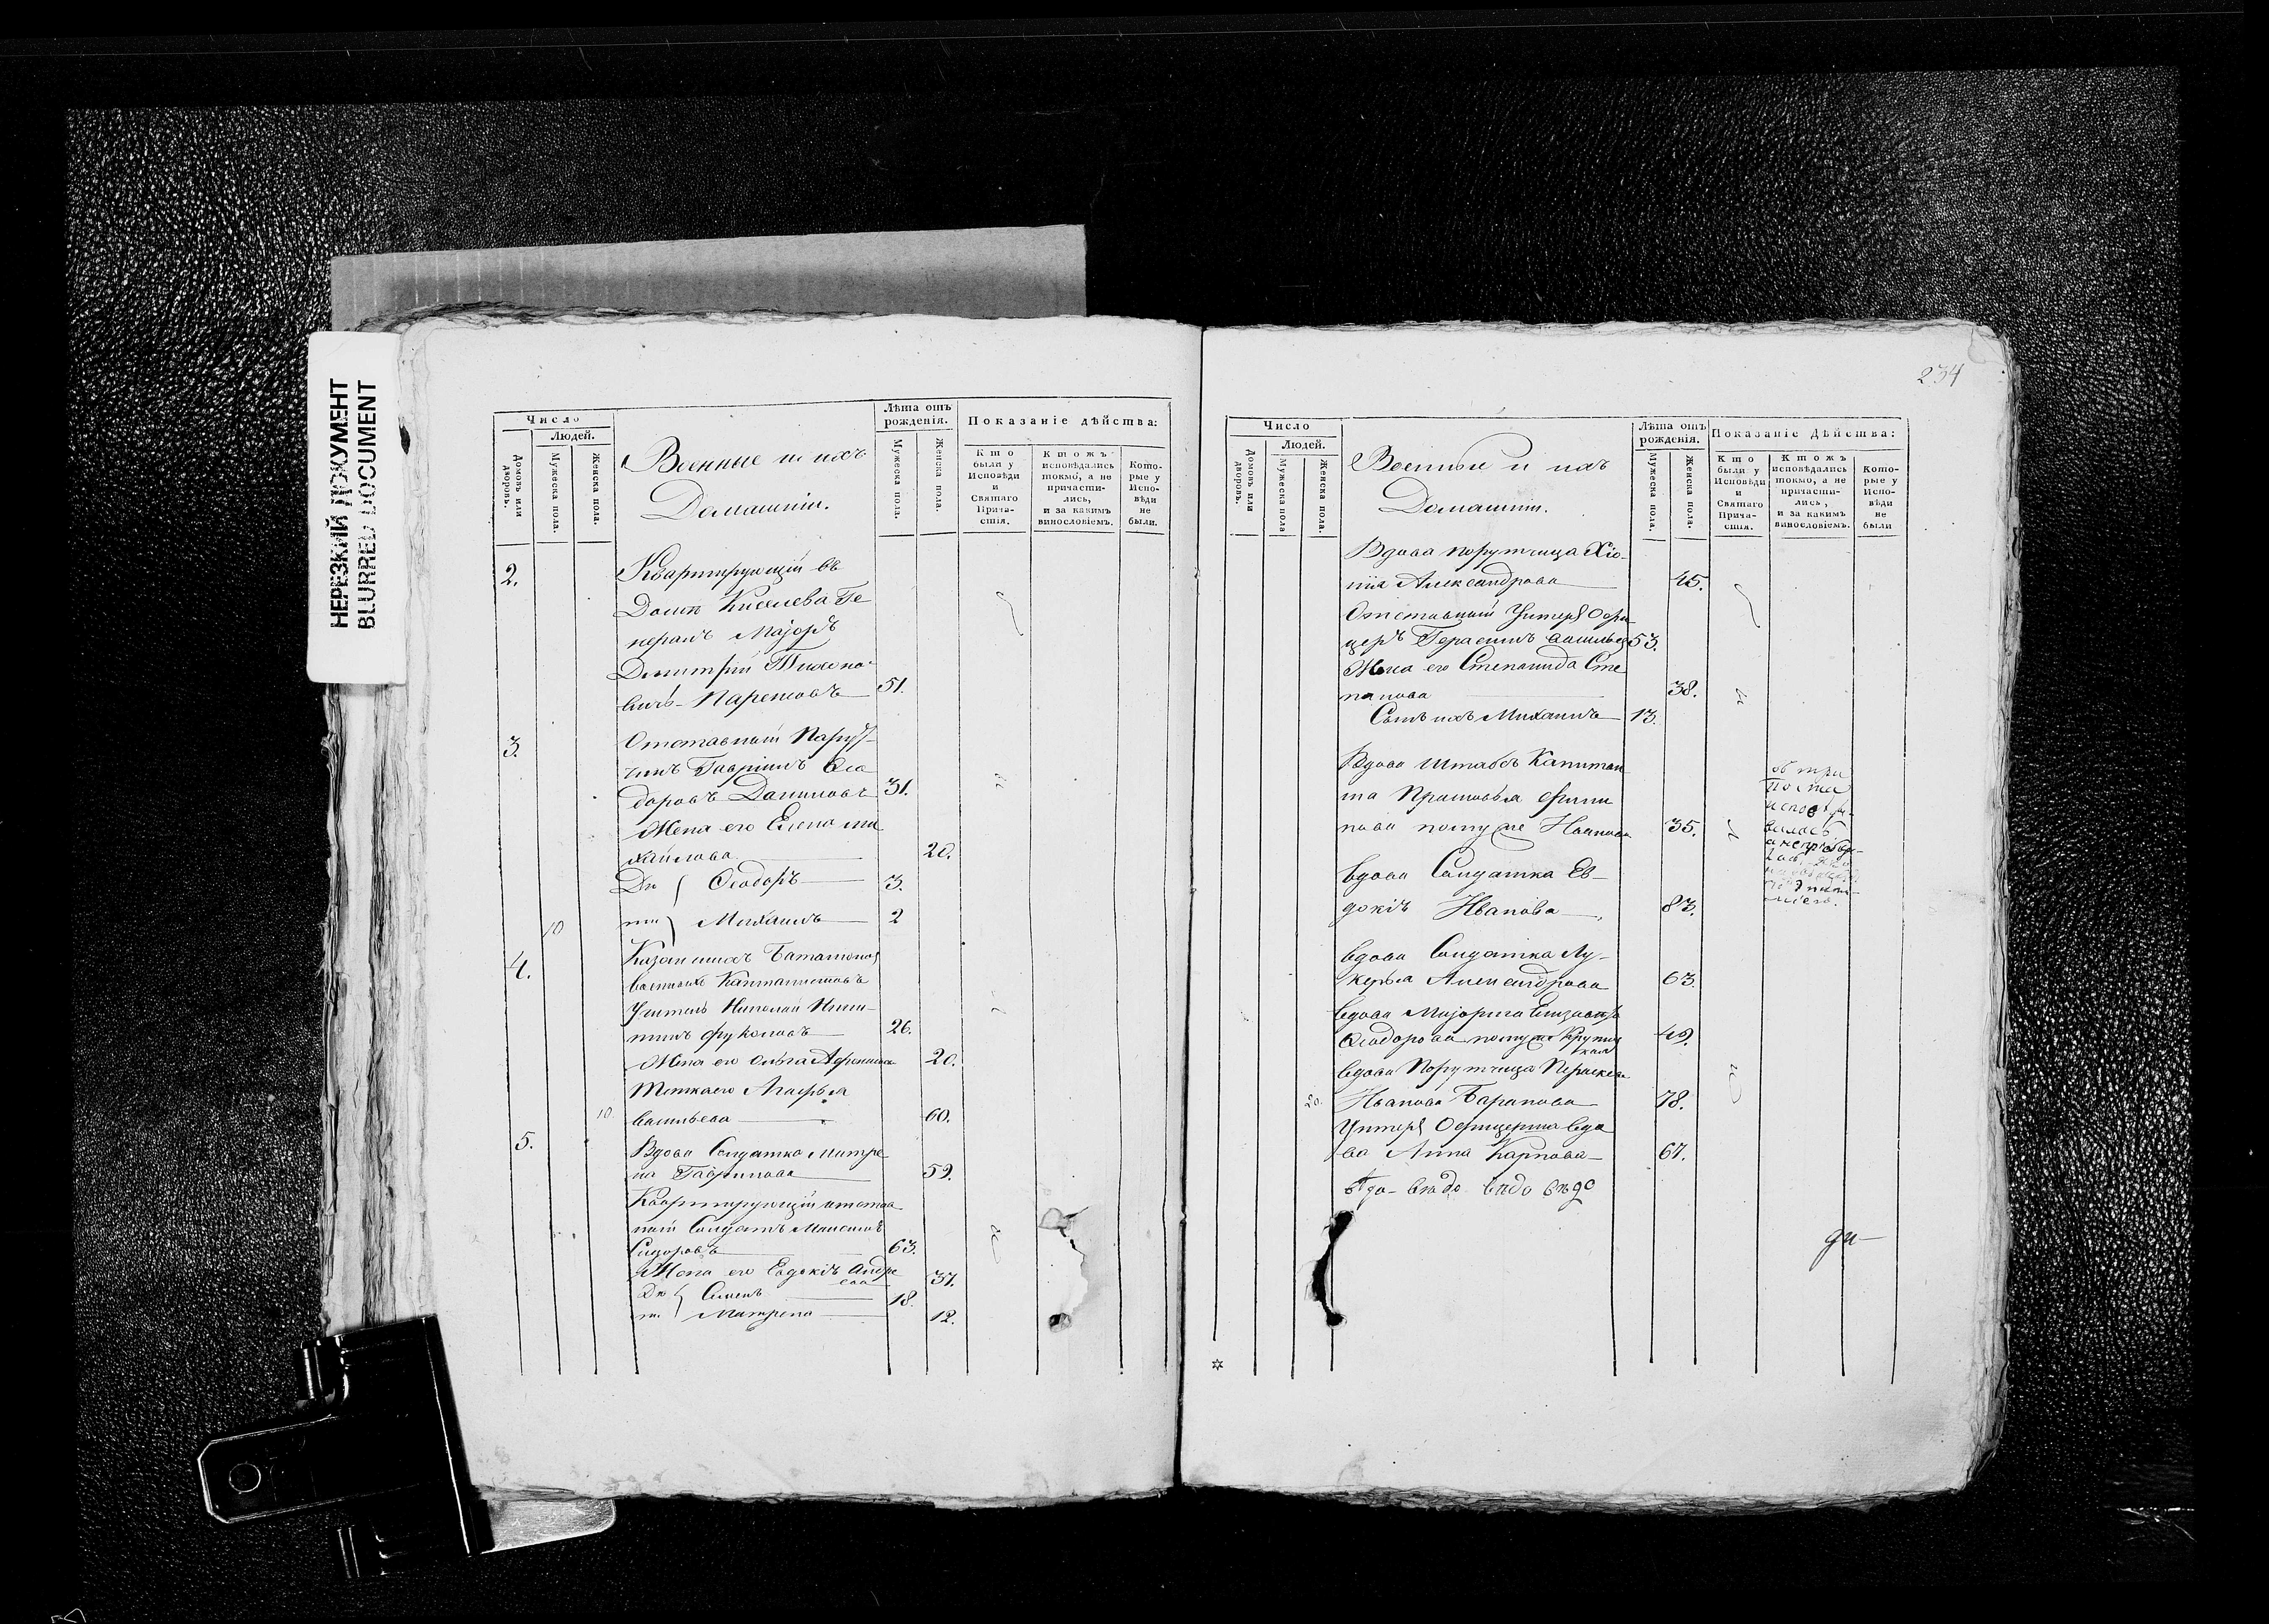 НЕРЕЗКИЙ ДОКУМЕНТ
BLURRED DOCUMENT
Число
Людей.
Домовъ или дворовъ.
Мужеска пола.
Женска пола.
Военные и ихъ
Домашніи.
Лѣта отъ рожденія.
Мужеска пола.
Женска пола.
Показаніе дѣйства:
Кто были у Исповѣди и Святаго Прича-стія.
Ктожъ исповѣдались токмо, а не причасти-лись, и за какимъ винословіемъ.
Кото-рые у Испо-вѣди не были.
2.
Квартирующій въ
Домѣ Киселева Ге
нералъ Маjоръ
Дмитрій Тихоно-
вичъ Паренсовъ 51.
3.
Отставный Порут-
чикъ Гавріилъ Ѳео
доровъ Даниловъ 31.
Жена его Елена Ми
хайлова 20.
Дѣ Ѳеодоръ 3.
10
ти Михаилъ 2
4.
Баталіона
Кантонистовъ
Учитель Николай
26.
Жена его Ольга 20.
Тетка его Агафья
10.
Васильева 60.
5.
Вдова Солдатка Матре
на Гаврилова 59.
Квартирующій отстав
ный Солдатъ Максимъ
Сидоровъ 63.
Жена его Евдокія Андре
ева 37.
Дѣ Семенъ 18.
ти Матрена 12.
234
Число
Людей.
Домовъ или дворовъ.
Мужеска пола
Женска пола.
Военные и ихъ
Домашніи.
Лѣта отъ рожденія.
Мужеска пола.
Женска пола.
Показаніе Дѣйства:
Кто были у Исповѣди и Святаго Прича-стія.
Ктожъ исповѣдались токмо, а не причасти-лись, и за какимъ винословіемъ.
Кото-рые у Испо-вѣди не были
Вдова порутчица Хіо-
нія Александрова 45.
Отставный Унтеръ Офи
церъ Герасимъ Васильев 53.
Жена его Степанида Сте
панова 38.
Сынъ ихъ Михаилъ 13.
Вдова Штабсъ Капитан
ша
по мужѣ Иванова 35.
Вдова Солдатка Ев-
докія Иванова 83.
Вдова Солдатка Лу-
керья Александрова 63.
Вдова Маjорша Елизавета
Ѳеодорова по мужѣ 49.
Вдова Порутчица Параскева
20.
Иванова Баранова 78.
Унтеръ Офицерша вдо
ва Анна Карпова 67.